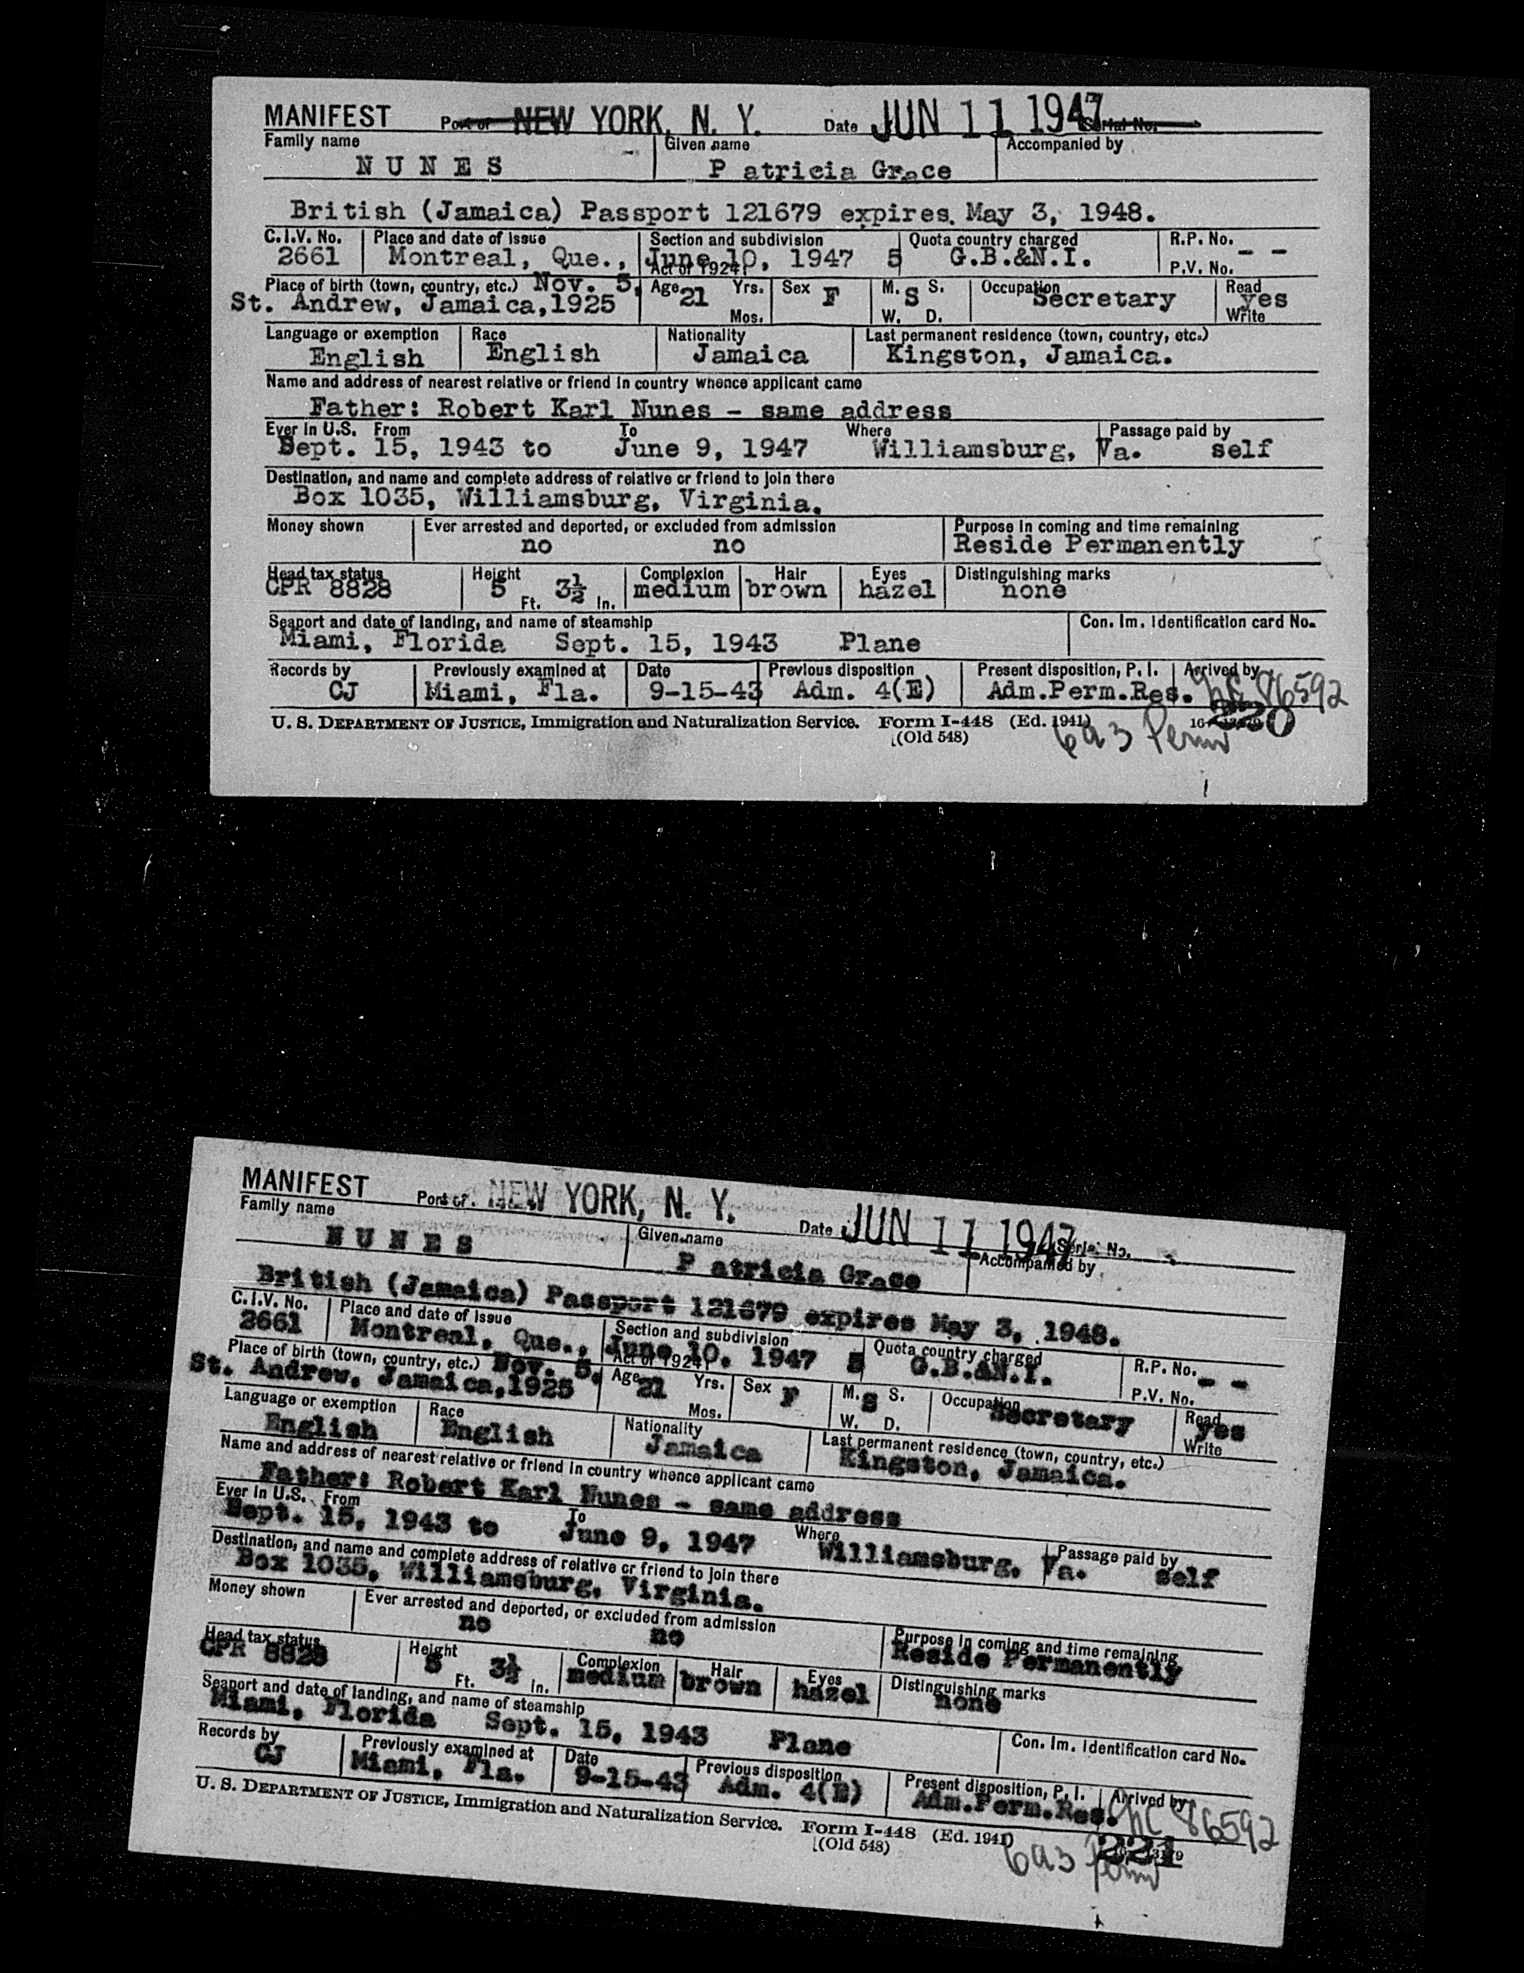 MANIFEST Port of NEW YORK, N. Y. Date JUN 11 1947 Serial No.
Family name Given name Accompanied by
N U N E S P atricia Grace
British (Jamaica) Passport 121679 expires. May 3, 1948.
C.I.V. No. Place and date of issue Section and subdivision Quota country charged R.P. No. - -
2661 Montreal, Que., June 10, 1947 5 G.B.&N.I.
Act of 1924, P.V. No.
Place of birth (town, country, etc.) Nov. 5, Age 21 Yrs. Sex F M. S S. Occupation Secretary Read yes
St. Andrew, Jamaica,1925 Mos. W. D. Write
Language or exemption Race Nationality Last permanent residence (town, country, etc.)
English English Jamaica Kingston, Jamaica.
Name and address of nearest relative or friend in country whence applicant came
Father: Robert Karl Nunes - same address
Ever in U.S. From To Where Passage paid by
Sept. 15, 1943 to June 9, 1947 Williamsburg, Va. self
Destination, and name and complete address of relative or friend to join there
Box 1035, Williamsburg, Virginia.
Money shown Ever arrested and deported, or excluded from admission Purpose in coming and time remaining
no no Reside Permanently
Head tax status Height Complexion Hair Eyes Distinguishing marks
CPR 8828 5 Ft. 3½ In. medium brown hazel none
Seaport and date of landing, and name of steamship Con. Im. Identification card No.
Miami, Florida Sept. 15, 1943 Plane
Records by Previously examined at Date Previous disposition Present disposition, P. I. Arrived by
CJ Miami, Fla. 9-15-43 Adm. 4(E) Adm.Perm.Res. 86592
U. S. DEPARTMENT OF JUSTICE, Immigration and Naturalization Service. Form I-448 (Ed. 1941)
(Old 548) 6a3 Perm
MANIFEST Port of NEW YORK, N. Y. Date JUN 11 1947 Serial No.
Family name Given name Accompanied by
N U N E S P atricia Grace
British (Jamaica) Passport 121679 expires May 3, 1948.
C.I.V. No. Place and date of issue Section and subdivision Quota country charged R.P. No. - -
2661 Montreal, Que., June 10, 1947 5 G.B.&N.I.
Act of 1924, P.V. No.
Place of birth (town, country, etc.) Nov. 5, Age 21 Yrs. Sex F M. S S. Occupation Secretary Read yes
St. Andrew, Jamaica,1925 Mos. W. D. Write
Language or exemption Race Nationality Last permanent residence (town, country, etc.)
English English Jamaica Kingston, Jamaica.
Name and address of nearest relative or friend in country whence applicant came
Father: Robert Karl Nunes - same address
Ever in U.S. From To Where Passage paid by
Sept. 15, 1943 to June 9, 1947 Williamsburg, Va. self
Destination, and name and complete address of relative or friend to join there
Box 1035, Williamsburg, Virginia.
Money shown Ever arrested and deported, or excluded from admission Purpose in coming and time remaining
no no Reside Permanently
Head tax status Height Complexion Hair Eyes Distinguishing marks
CPR 8828 5 Ft. 3½ In. medium brown hazel none
Seaport and date of landing, and name of steamship Con. Im. Identification card No.
Miami, Florida Sept. 15, 1943 Plane
Records by Previously examined at Date Previous disposition Present disposition, P. I. Arrived by
CJ Miami, Fla. 9-15-43 Adm. 4(E) Adm.Perm.Res. 86592
U. S. DEPARTMENT OF JUSTICE, Immigration and Naturalization Service. Form I-448 (Ed. 1941) 221
(Old 548) 6a3 Perm